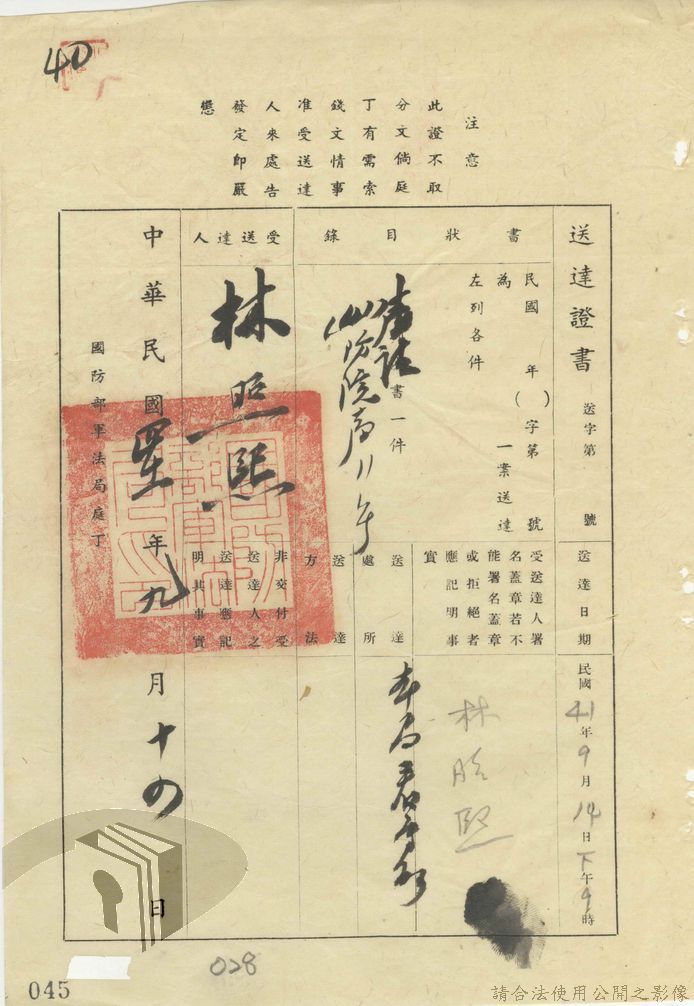 40
注意
此證不取
分文倘庭
丁有需索
錢文情事
准受送達
人來處告
發定即嚴
懲
送達證書 送字第 號
書狀目錄
民國 年( )字第 號
為 一案送達
左列各件
書一件
受送達人
林照熙
中華民國 年九月十四日
國防部軍法局庭丁
送達日期
民國41年9月14日下午9時
受送達人署
名蓋章若不
能署名蓋章
或拒絕者
應記明事
實
林 熙
送達處所
本局看守所
送達方法
非交付受
送達人之
送達應記
明其事實
028
045
請合法使用公開之影像